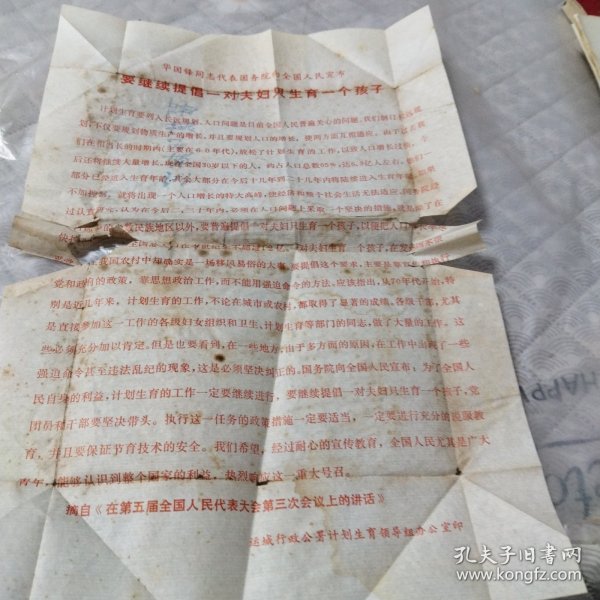 华国锋同志代表国务院向全国人民宣布
要继续提倡一对夫妇只生育一个孩子
计划生育要列入长远规划。人口问题是目前全国人民普遍关心的问题，我们制订长远规
划，不仅要规划物质生产的增长，并且要规划人口的增长，使两方面互相适应。由于过去我
们在相当长的时期内（主要在60年代），放松了计划生育的工作，以致人口增长过快，
后还将继续大量增长。现在全国30岁以下的人，约占人口总数65%，达6.3亿人左右，
部分已经进入生育年龄，其余大部分在今后十几年到二十几年内将陆续进入生育年龄。如果
不加控制，就将出现一个人口增长的特大高峰，使经济和整个社会生活无法适应。国务院经
过认真研究，认为在今后二、三十年内，必须在人口问题上采取一个坚决的措施，就是除了在
人口稀少的少数民族地区以外，要普遍提倡一对夫妇只生育一个孩子，以便把人口增长率尽
一对夫妇生育一个孩子，在
我国农村中却确实是一场移风易俗的大事，要提倡这个要求，主要是靠
党和政府的政策，靠思想政治工作，而不能用强迫命令的方法，应该指出，从70年代开始，特
别是近几年来，计划生育的工作，不论在城市或农村，都取得了显著的成绩，各级干部，尤其
是直接参加这一工作的各级妇女组织和卫生、计划生育等部门的同志，做了大量的工作。这
些必须充分加以肯定。但是也要看到，在一些地方，由于多方面的原因，在工作中出现了一些
强迫命令甚至违法乱纪的现象，这是必须坚决纠正的。国务院向全国人民宣布：为了全国人
民自身的利益，计划生育的工作一定要继续进行，要继续提倡一对夫妇只生育一个孩子，党
团员和干部要坚决带头。执行这一任务的政策措施一定要适当，一定要进行充分的说服教
育，并且要保证节育技术的安全。我们希望，经过耐心的宣传教育，全国人民尤其是广大
青年，能够认识到整个国家的利益，热烈响应这一重大号召。
摘自《在第五届全国人民代表大会第三次会议上的讲话》
运城行政公署计划生育领导组办公室印
HAPPY
孔夫子旧书网
www.kongfz.com